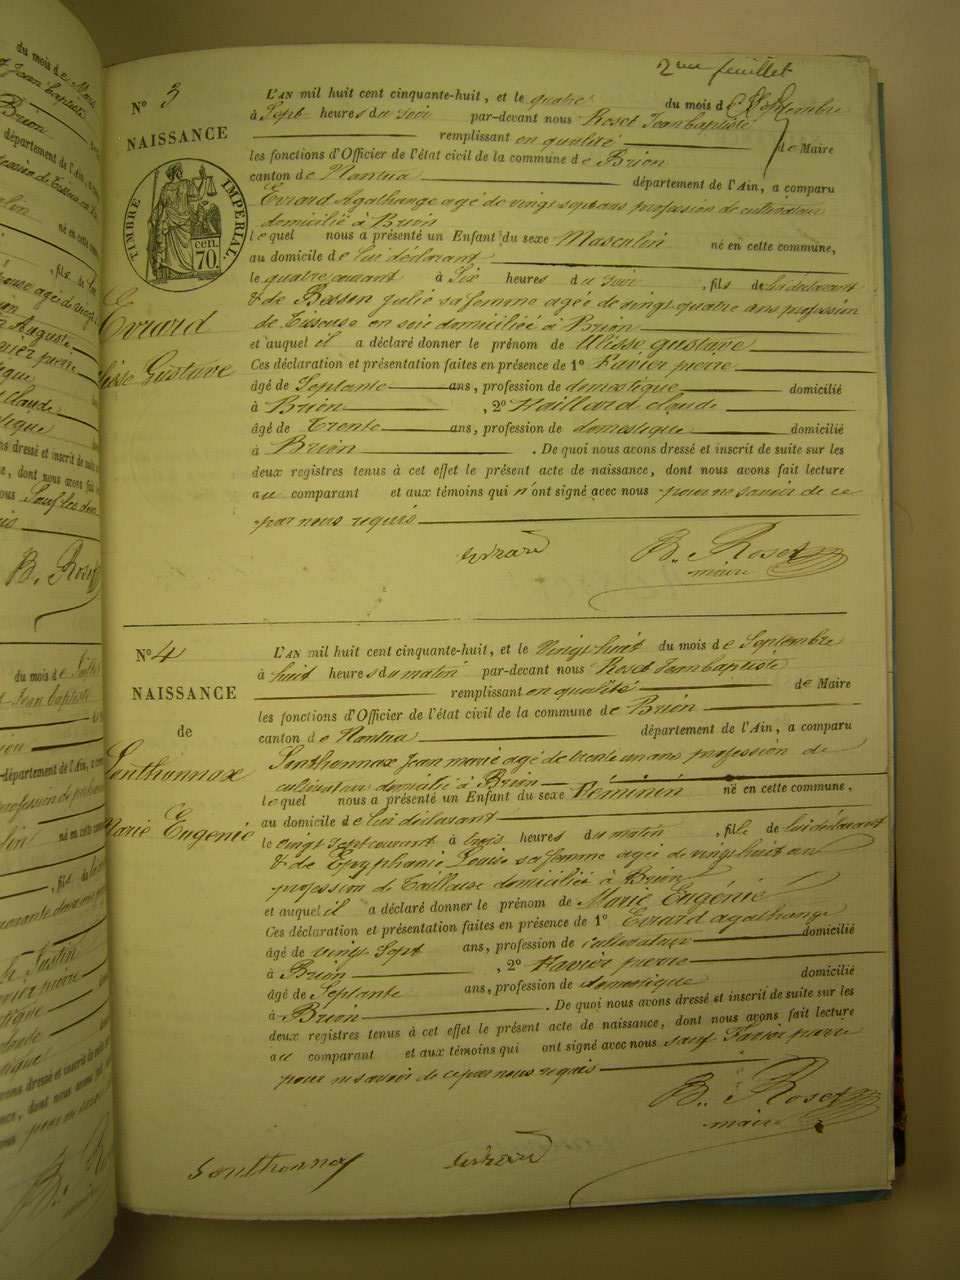 2me feuillet
N° 3
NAISSANCE
TIMBRE IMPERIAL
70 cen.
Evrard
Ulisse Gustave
L'AN mil huit cent cinquante-huit, et le quatre du mois de Septembre
à Sept heures du soir par-devant nous Roset Jeanbaptiste
remplissant en qualité de Maire
les fonctions d'Officier de l'état civil de la commune de Brion
canton de Nantua département de l'Ain, a comparu
Evrard Agathange agé de vingt sept ans profession de cultivateur
domicilié à Brion
lequel nous a présenté un Enfant du sexe Masculin né en cette commune,
au domicile de lui déclarant
le quatre courant à Six heures du soir, fils de lui déclarant
& de Besson julie sa femme agée de vingt quatre ans profession
de Tisseuse en soie domiciliée à Brion
et auquel il a déclaré donner le prénom de Ulisse gustave
Ces déclaration et présentation faites en présence de 1° Favier pierre
âgé de Septante ans, profession de domestique domicilié
à Brion, 2° Maillard claude
âgé de Trente ans, profession de domestique domicilié
à Brion. De quoi nous avons dressé et inscrit de suite sur les
deux registres tenus à cet effet le présent acte de naissance, dont nous avons fait lecture
au comparant et aux témoins qui n'ont signé avec nous pour ne savoir de ce
par nous requis
Evrard
B.. Roset
maire
N° 4
NAISSANCE
de
Gonthonnax
Marie Eugenie
L'AN mil huit cent cinquante-huit, et le Vingt huit du mois de Septembre
à huit heures du matin par-devant nous Roset Jeanbaptiste
remplissant en qualité de Maire
les fonctions d'Officier de l'état civil de la commune de Brion
canton de Nantua département de l'Ain, a comparu
Gonthonnax Jean marie agé de trente un ans profession de
cultivateur domicilié à Brion
lequel nous a présenté un Enfant du sexe Féminin né en cette commune,
au domicile de lui déclarant
le vingt sept courant à trois heures du matin, fille de lui déclarant
& de Epyphanie Louise sa femme agée de vingt huit ans
profession de Tailleuse domiciliée à Brion
et auquel il a déclaré donner le prénom de Marie Eugénie
Ces déclaration et présentation faites en présence de 1° Evrard agathange
âgé de vingt Sept ans, profession de cultivateur domicilié
à Brion, 2° Favier pierre
âgé de Septante ans, profession de domestique domicilié
à Brion. De quoi nous avons dressé et inscrit de suite sur les
deux registres tenus à cet effet le présent acte de naissance, dont nous avons fait lecture
au comparant et aux témoins qui ont signé avec nous sauf Favier pierre
pour ne savoir de ce par nous requis
B.. Roset
maire
Gonthonnax
Evrard